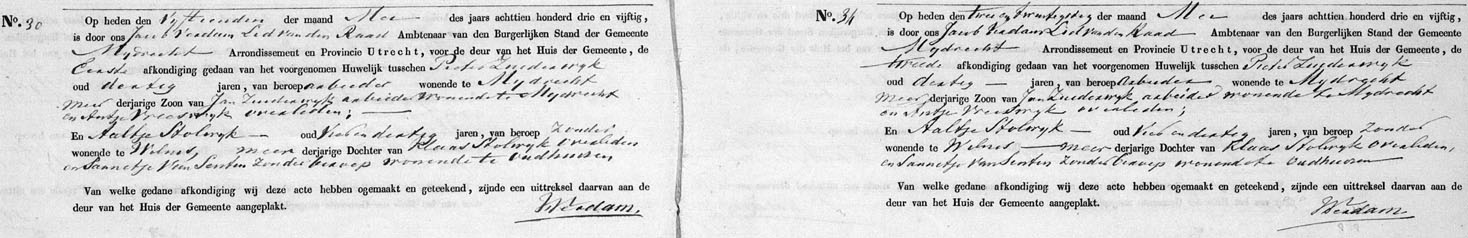 No. 30
Op heden den Vyftienden der maand Mei des jaars achttien honderd drie en vijftig,
is door ons Jacob Verdam Lid van den Raad Ambtenaar van den Burgerlijken Stand der Gemeente
Mydrecht Arrondissement en Provincie Utrecht, voor de deur van het Huis der Gemeente, de
Eerste afkondiging gedaan van het voorgenomen Huwelijk tusschen Pieter Zuyderwyk
oud dertig jaren, van beroep arbeider wonende te Mydrecht
meer derjarige Zoon van Jan Zuiderwyk arbeider wonende te Mydrecht
en Antje Vreeswyk overleden; —
En Aaltje Stolwyk — oud vier en dertig jaren, van beroep zonder
wonende te Wilnis, meer derjarige Dochter van Klaas Stolwyk overleden
en Sannetje Van Senten zonder beroep wonende te Oudhuizen
Van welke gedane afkondiging wij deze acte hebben opgemaakt en geteekend, zijnde een uittreksel daarvan aan de
deur van het Huis der Gemeente aangeplakt.
JVerdam.
No. 34
Op heden den twee en twintigsten der maand Mei des jaars achttien honderd drie en vijftig,
is door ons Jacob Verdam Lid van den Raad Ambtenaar van den Burgerlijken Stand der Gemeente
Mydrecht Arrondissement en Provincie Utrecht, voor de deur van het Huis der Gemeente, de
tweede afkondiging gedaan van het voorgenomen Huwelijk tusschen Pieter Zuyderwyk
oud dertig jaren, van beroep arbeider wonende te Mydrecht
meer derjarige Zoon van Jan Zuiderwyk arbeider wonende te Mydrecht
en Antje Vreeswyk overleden;
En Aaltje Stolwyk — oud vier en dertig jaren, van beroep zonder
wonende te Wilnis — meer derjarige Dochter van Klaas Stolwyk overleden,
en Sannetje Van Senten zonder beroep wonende te Oudhuizen
Van welke gedane afkondiging wij deze acte hebben opgemaakt en geteekend, zijnde een uittreksel daarvan aan de
deur van het Huis der Gemeente aangeplakt.
JVerdam.